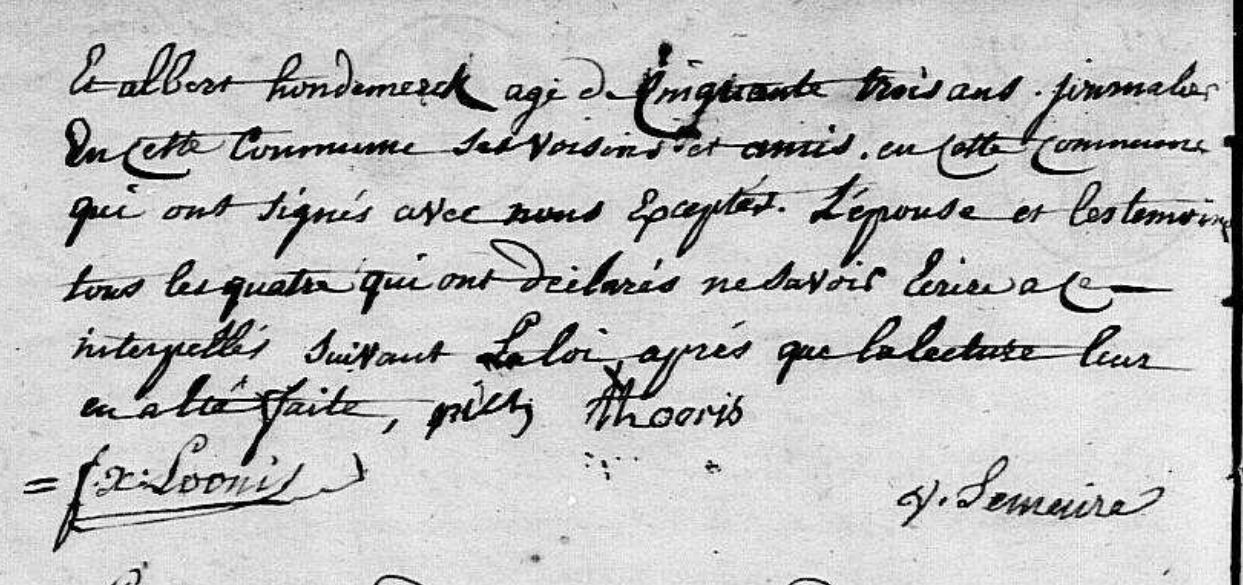 Et albert hondemerck agé de Cinquante trois ans. journalier
En Cette Commune ses voisins et amis. en Cette Commune
qui ont signés avec nous Exceptés. L'épouse et les temoins
tous les quatre qui ont déclarés ne savoir Ecrire a Ce —
interpellés suivant La loi, aprés que la lecture leur
en a été faite, Thooris
= f. x. Loonis
Lemeire